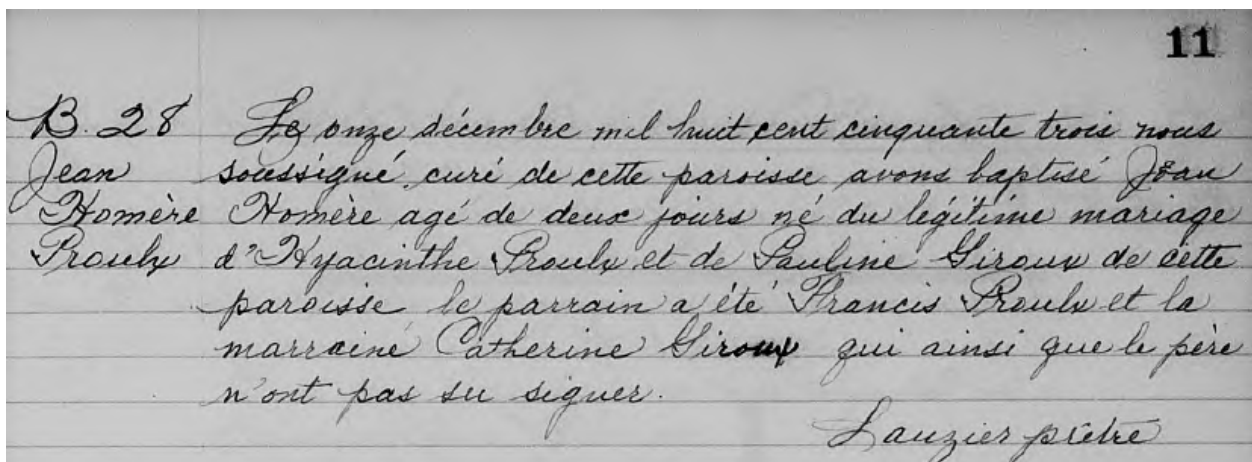 11
B. 28 Le onze décembre mil huit cent cinquante trois nous
Jean soussigné curé de cette paroisse avons baptisé Jean
Homère Homère agé de deux jours né du légitime mariage
Proulx d'Hyacinthe Proulx et de Pauline Giroux de cette
paroisse le parrain a été Francis Proulx et la
marraine Catherine Giroux qui ainsi que le père
n'ont pas su signer.
Lauzier prêtre